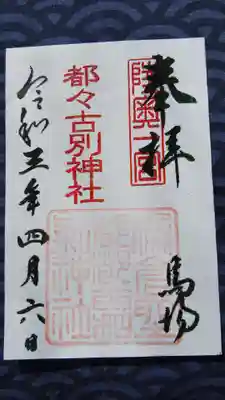 奉拝
陸奥一宮
馬場
都々古別神社
令和三年四月六日